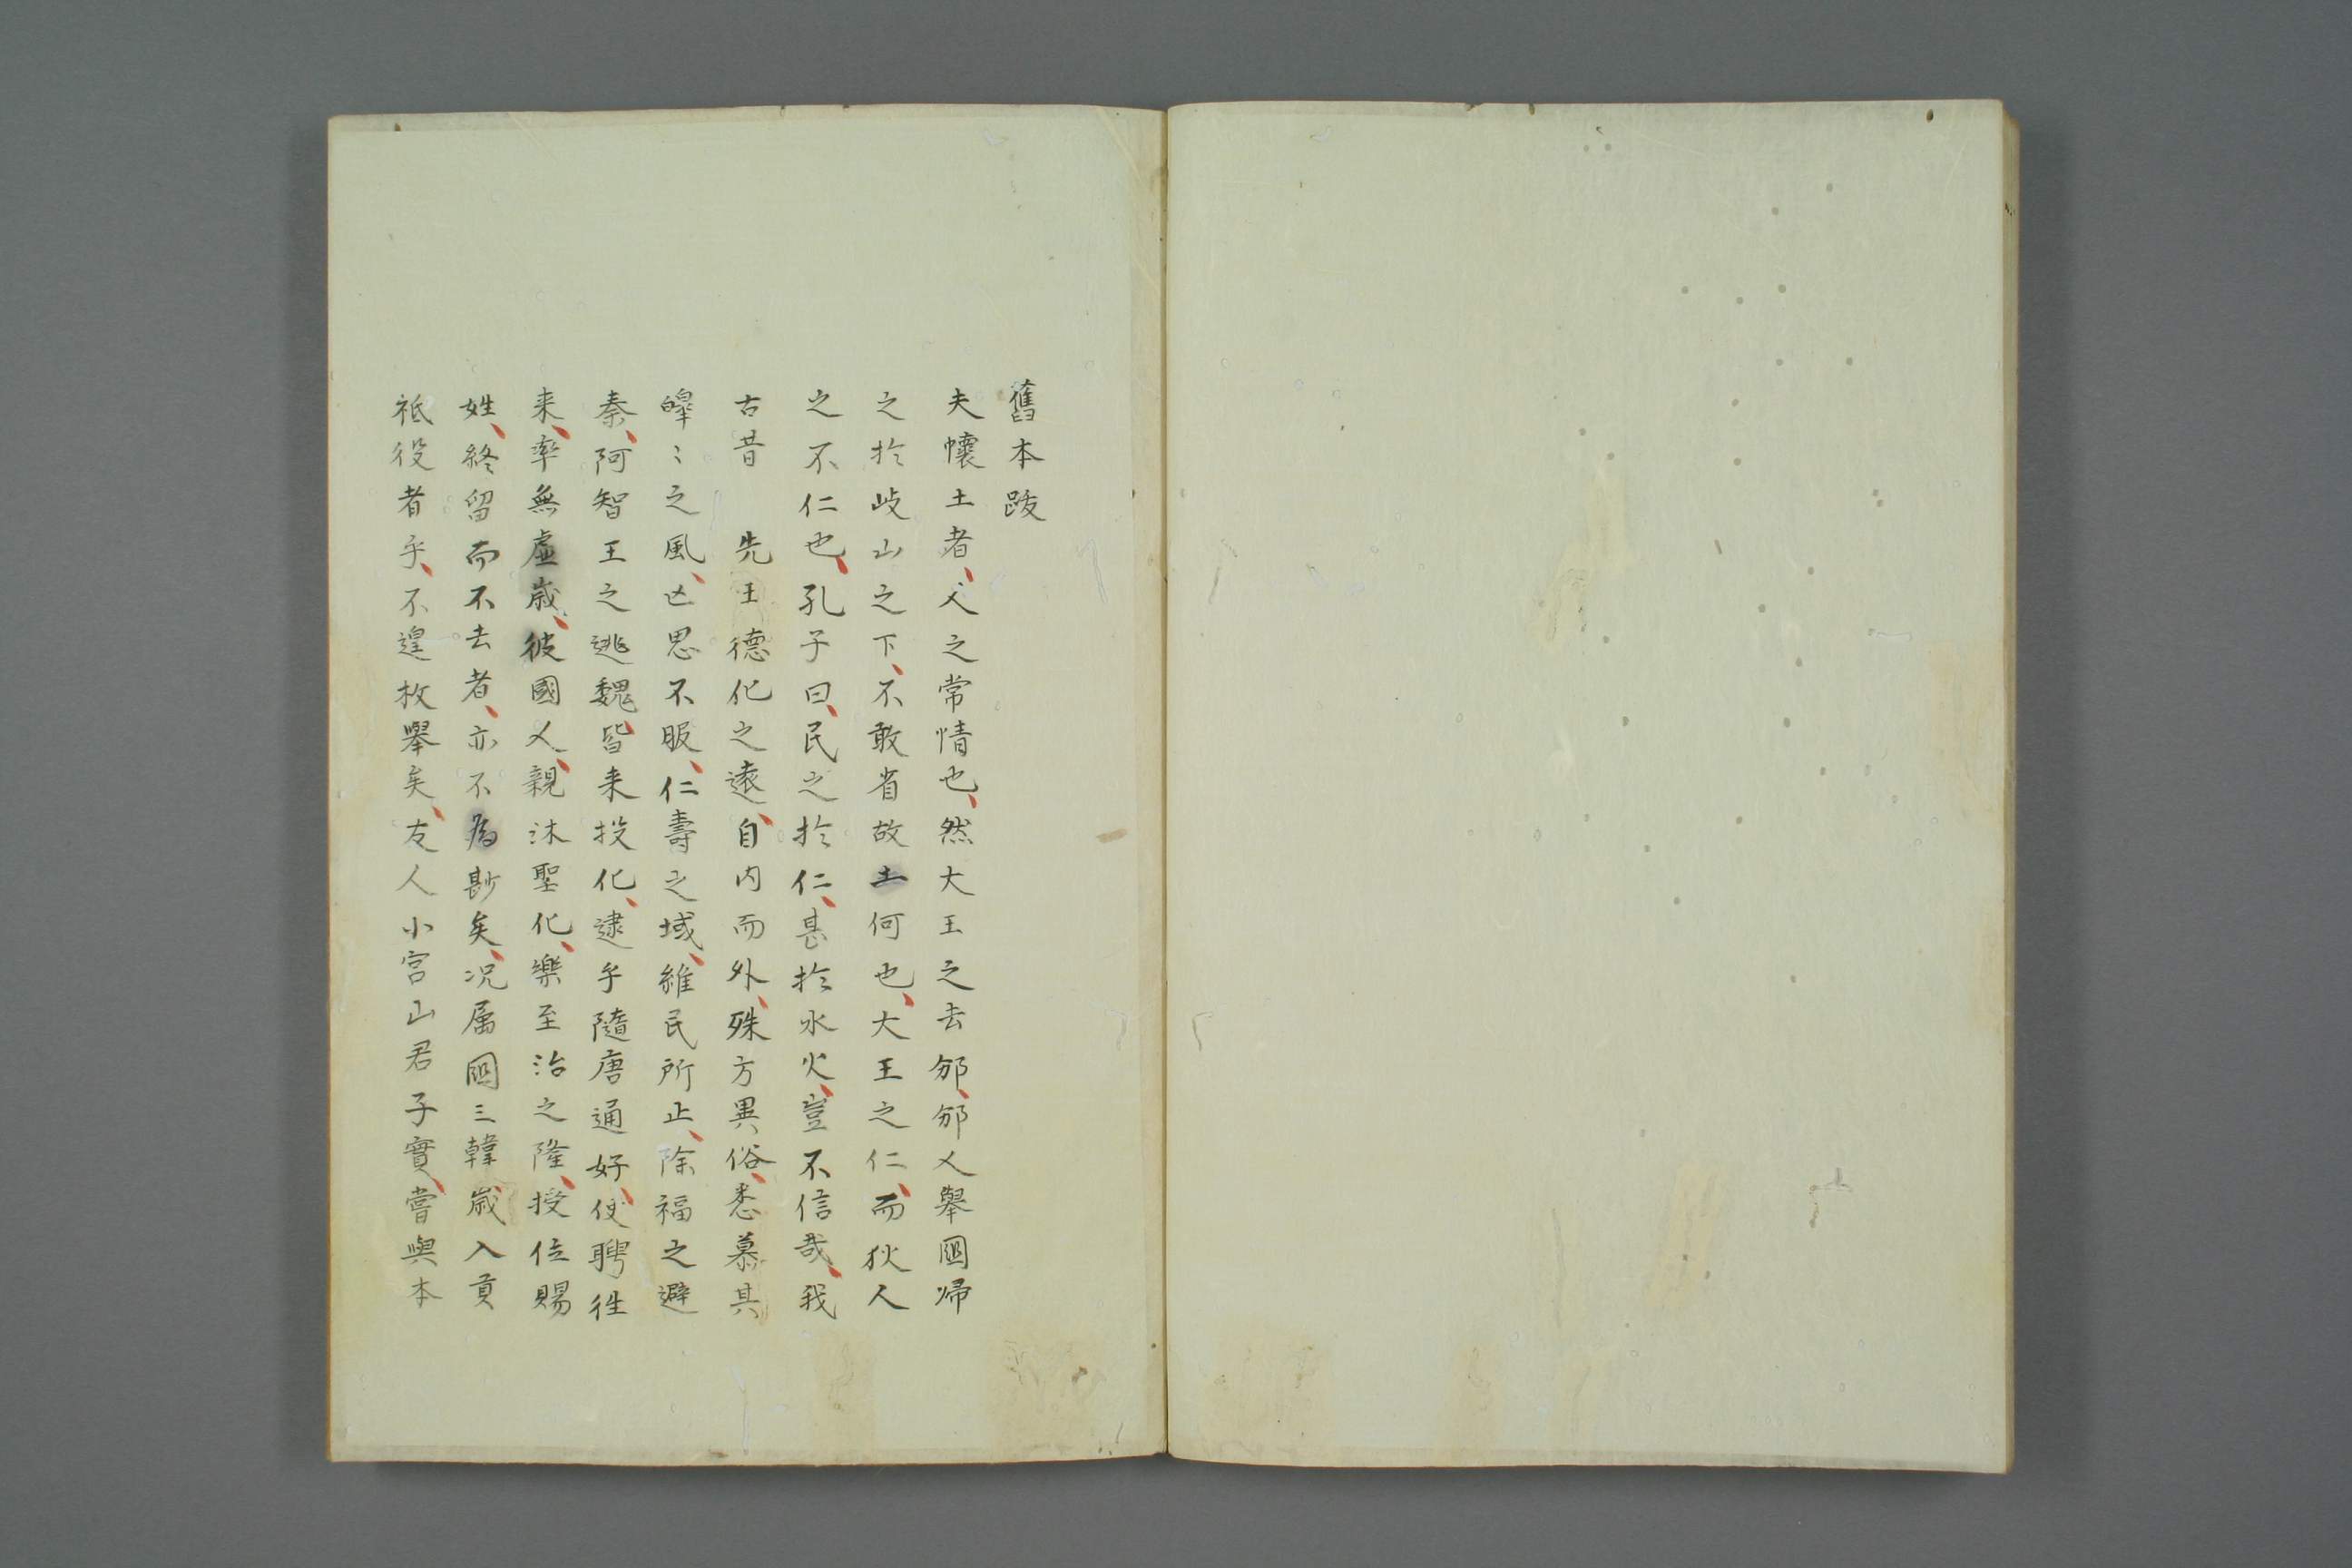 舊本跋
夫懷土者、人之常情也、然大王之去邠、邠人舉國歸
之於岐山之下、不敢省故土何也、大王之仁、而狄人
之不仁也、孔子曰、民之於仁、甚於水火、豈不信哉、我
古昔　先王德化之遠、自内而外、殊方異俗、悉慕其
皡〻之風、亡思不服、仁壽之域、維民所止、除福之避
秦、阿智王之逃魏、皆来投化、逮乎隨唐通好、使聘往
来、率無虛歲、彼國人、親沐聖化、樂至治之隆、授位賜
姓、終留而不去者、亦不為尠矣、况属國三韓歲入貢
祗役者乎、不遑枚舉矣、友人小宮山君子實、嘗與本